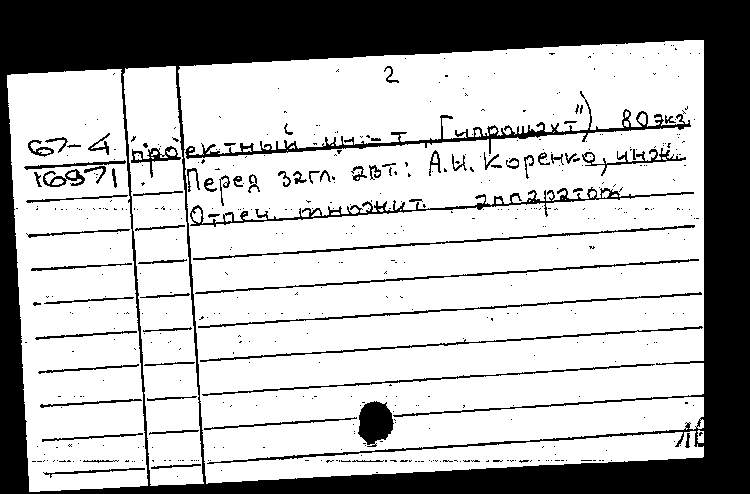 2
67-4 проектный ин-т „Гипрошахт"). 80 экз.
16971 Перед загл. авт.: А.И. Коренко, инж.
Отпеч. множит. аппаратом.